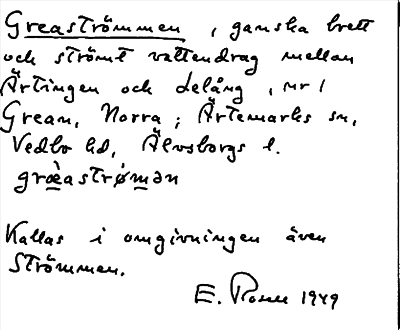 Greaströmmen, ganska brett
och strömt vattendrag mellan
Ärtingen och delång, nr 1
Grean, Norra; Ärtemarks sn,
Vedbo hd, Älvsborgs l.
græ̀astrǿmən
Kallas i omgivningen även
Strömmen.
E. Rosell 1949